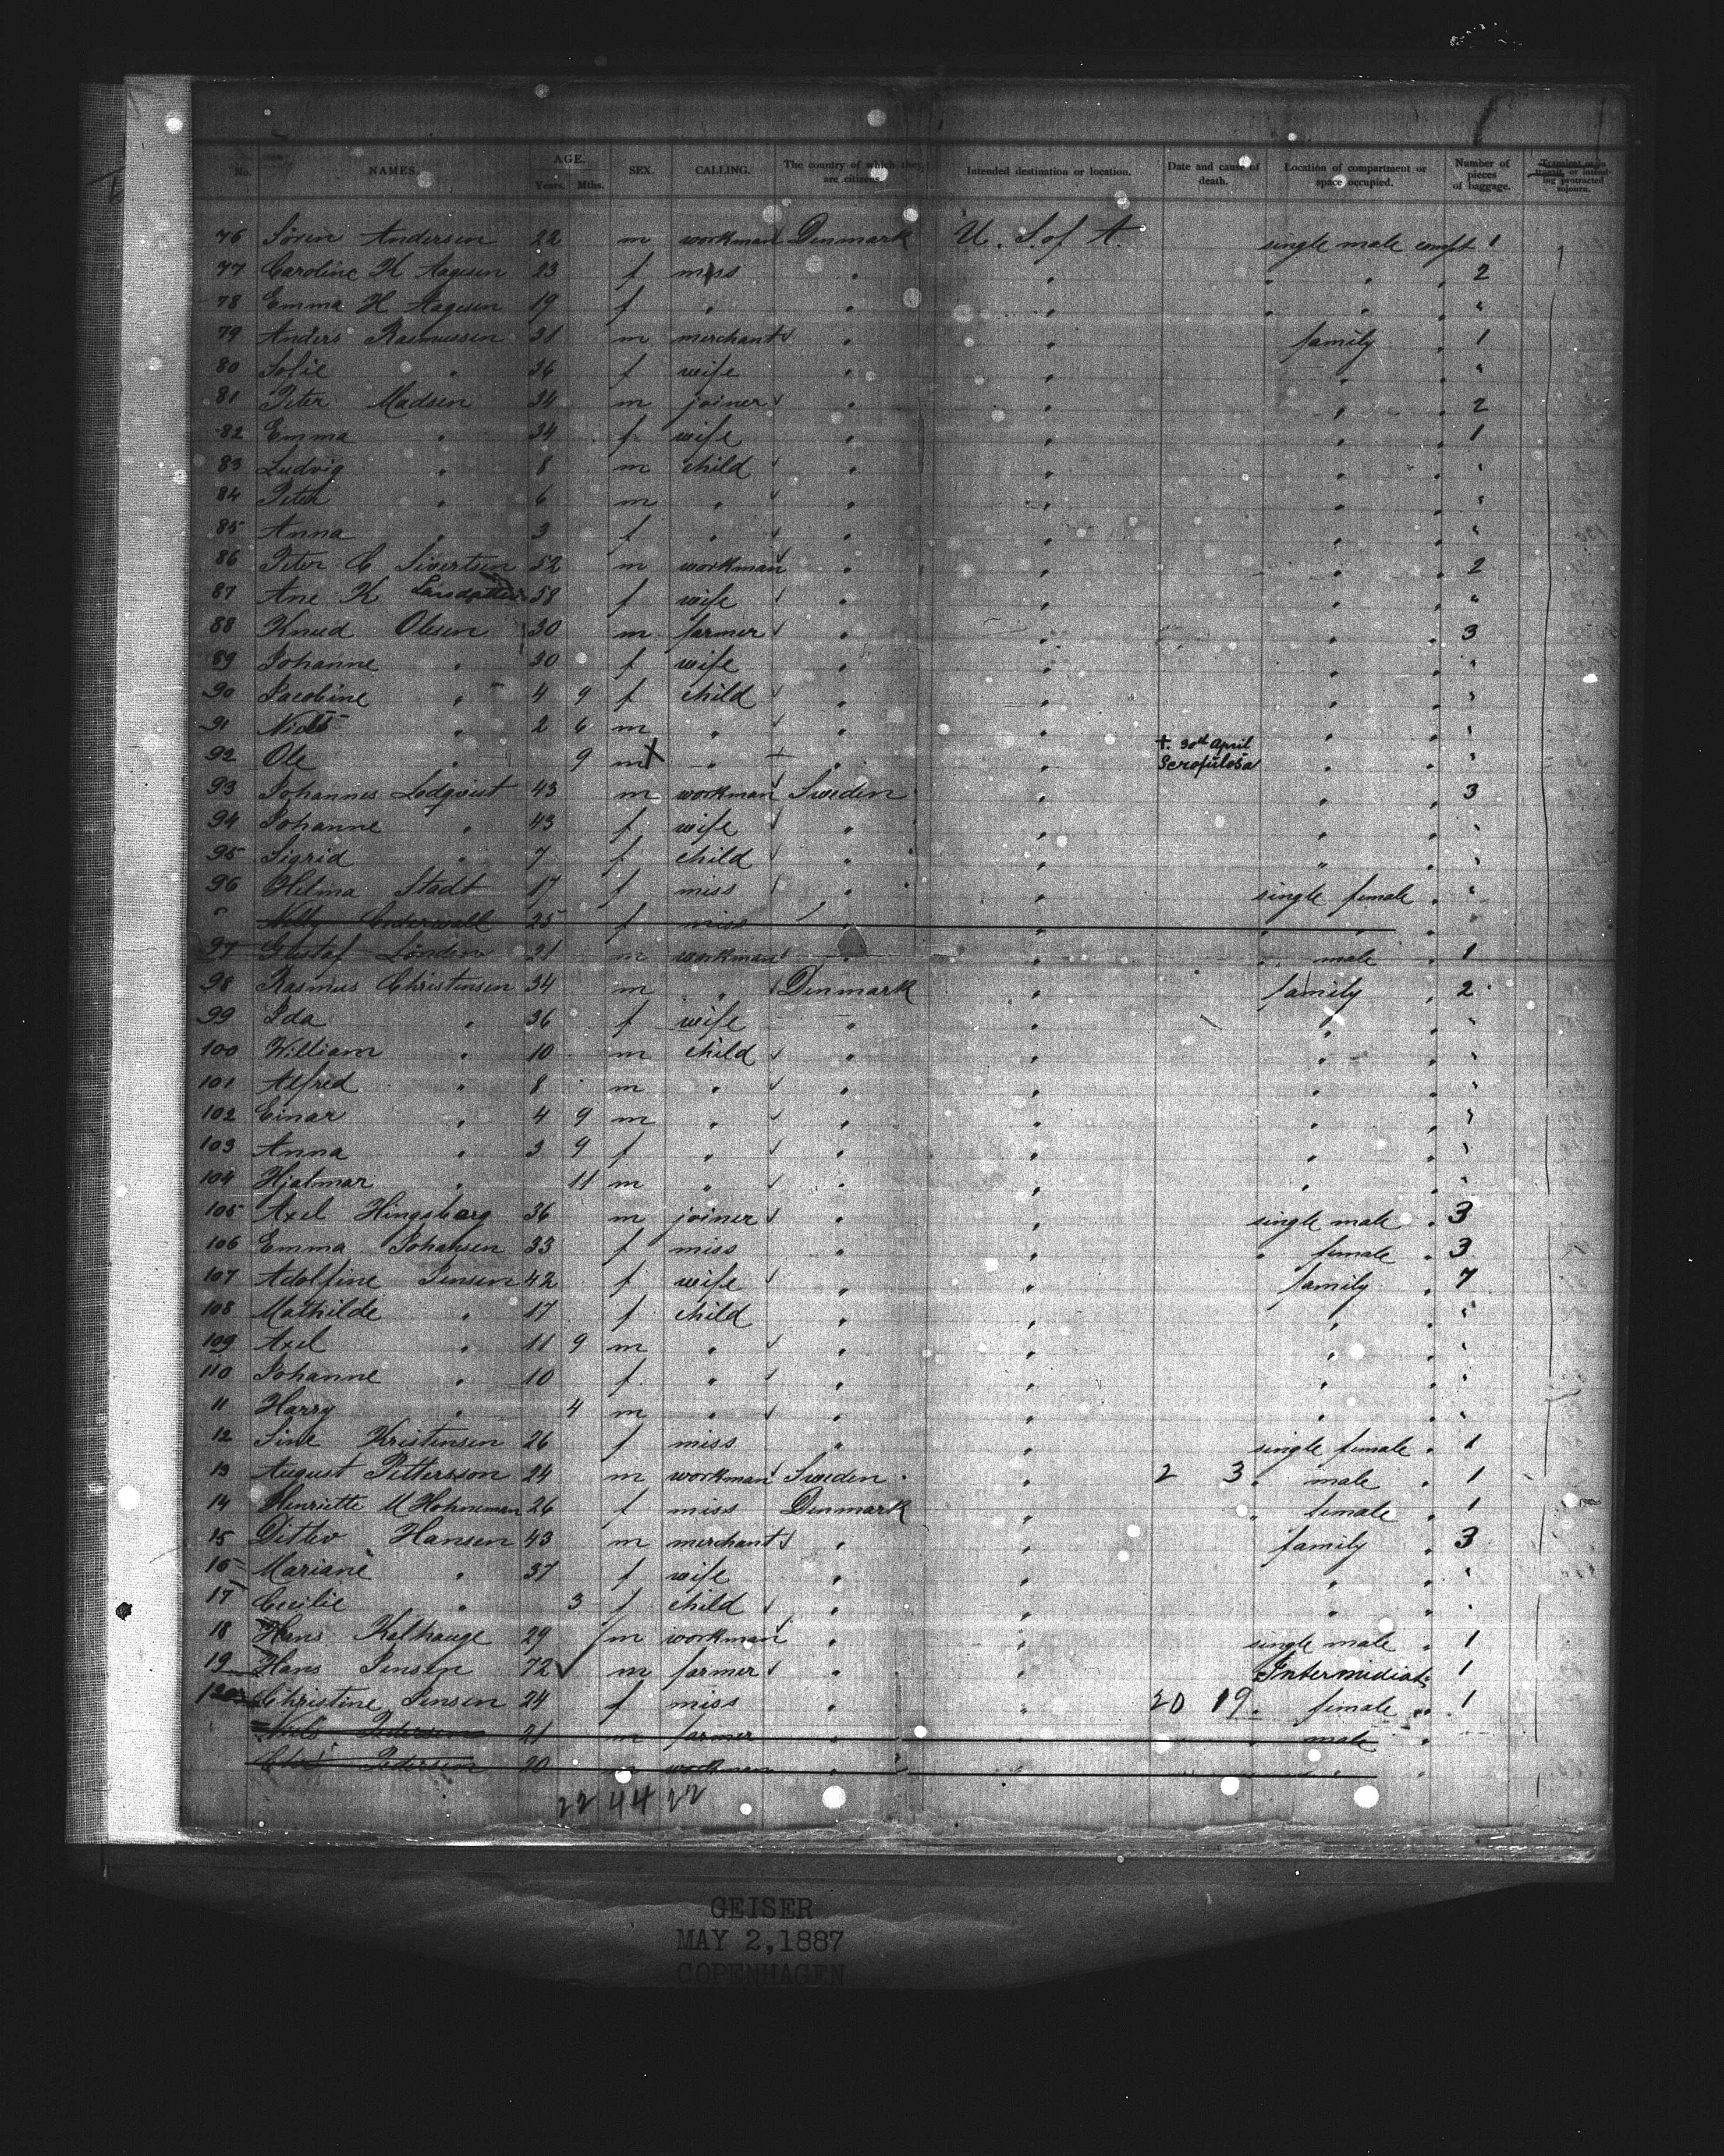 No. NAMES. AGE. Years. Mths. SEX. CALLING. The country of which they are citizens. Intended destination or location. Date and cause of death. Location of compartment or space occupied. Number of pieces of baggage. Transient or in transit, or intending protracted sojourn.
76 Sören Andersen 22 m workman Denmark U. S of A. single male compt 1
77 Caroline K Aagesen 23 f miss " " " " " 2
78 Emma H Aagesen 19 f " " " " " " "
79 Anders Rasmussen 31 m merchant " " family " 1
80 Sofie " 36 f wife " " " " "
81 Peter Madsen 34 m joiner " " " " 2
82 Emma " 34 f wife " " " " 1
83 Ludvig " 8 m child " " " " "
84 Peter " 6 m " " " " " "
85 Anna " 3 f " " " " " "
86 Peter C Sivertsen 52 m workman " " " " 2
87 Ane K Larsdatter 58 f wife " " " " "
88 Knud Olesen 30 m farmer " " " " 3
89 Johanne " 30 f wife " " " " "
90 Jacobine " 4 9 f child " " " " "
91 Niels " 2 6 m " " " " " "
92 Ole " 9 m X " " " †. 30th April Scrofulosa " " "
93 Johannes Lodqvist 43 m workman Sweden " " " 3
94 Johanne " 43 f wife " " " " "
95 Sigrid " 7 f child " " " " "
96 Hilma Stadt 17 f miss " " single female " "
" Nelly Cederwall 25 f miss " " " " " "
97 Gustaf Londen 21 m workman " " " male " 1
98 Rasmus Christensen 34 m " Denmark " family " 2
99 Ida " 36 f wife " " " " "
100 William " 10 m child " " " " "
101 Alfred " 8 m " " " " " "
102 Einar " 4 9 m " " " " " "
103 Anna " 3 9 f " " " " " "
104 Hjalmar " 11 m " " " " " "
105 Axel Hingsberg 36 m joiner " " single male " 3
106 Emma Johansen 33 f miss " " " female " 3
107 Adolfine Jensen 42 f wife " " family " 7
108 Mathilde " 17 f child " " " " "
109 Axel " 11 9 m " " " " " "
110 Johanne " 10 f " " " " " "
11 Harry " 4 m " " " " " "
12 Sine Kristensen 26 f miss " " single female " 1
13 August Pettersson 24 m workman Sweden " 2 3 " male " 1
14 Henriette M Hohneman 26 f miss Denmark " " female " 1
15 Ditlev Hansen 43 m merchant " " family " 3
16 Mariane " 37 f wife " " " " "
17 Cecilie " 3 f child " " " " "
18 Hans Kalhauge 29 m workman " " single male " 1
19 Hans Jensen 72 m farmer " " Intermediat 1
120 Christine Jensen 24 f miss " " 20 19 " female " 1
Niels Pedersen 21 m farmer " " male "
Pedersen 20 m workman " " " "
22 44 22
GEISER
MAY 2, 1887
COPENHAGEN